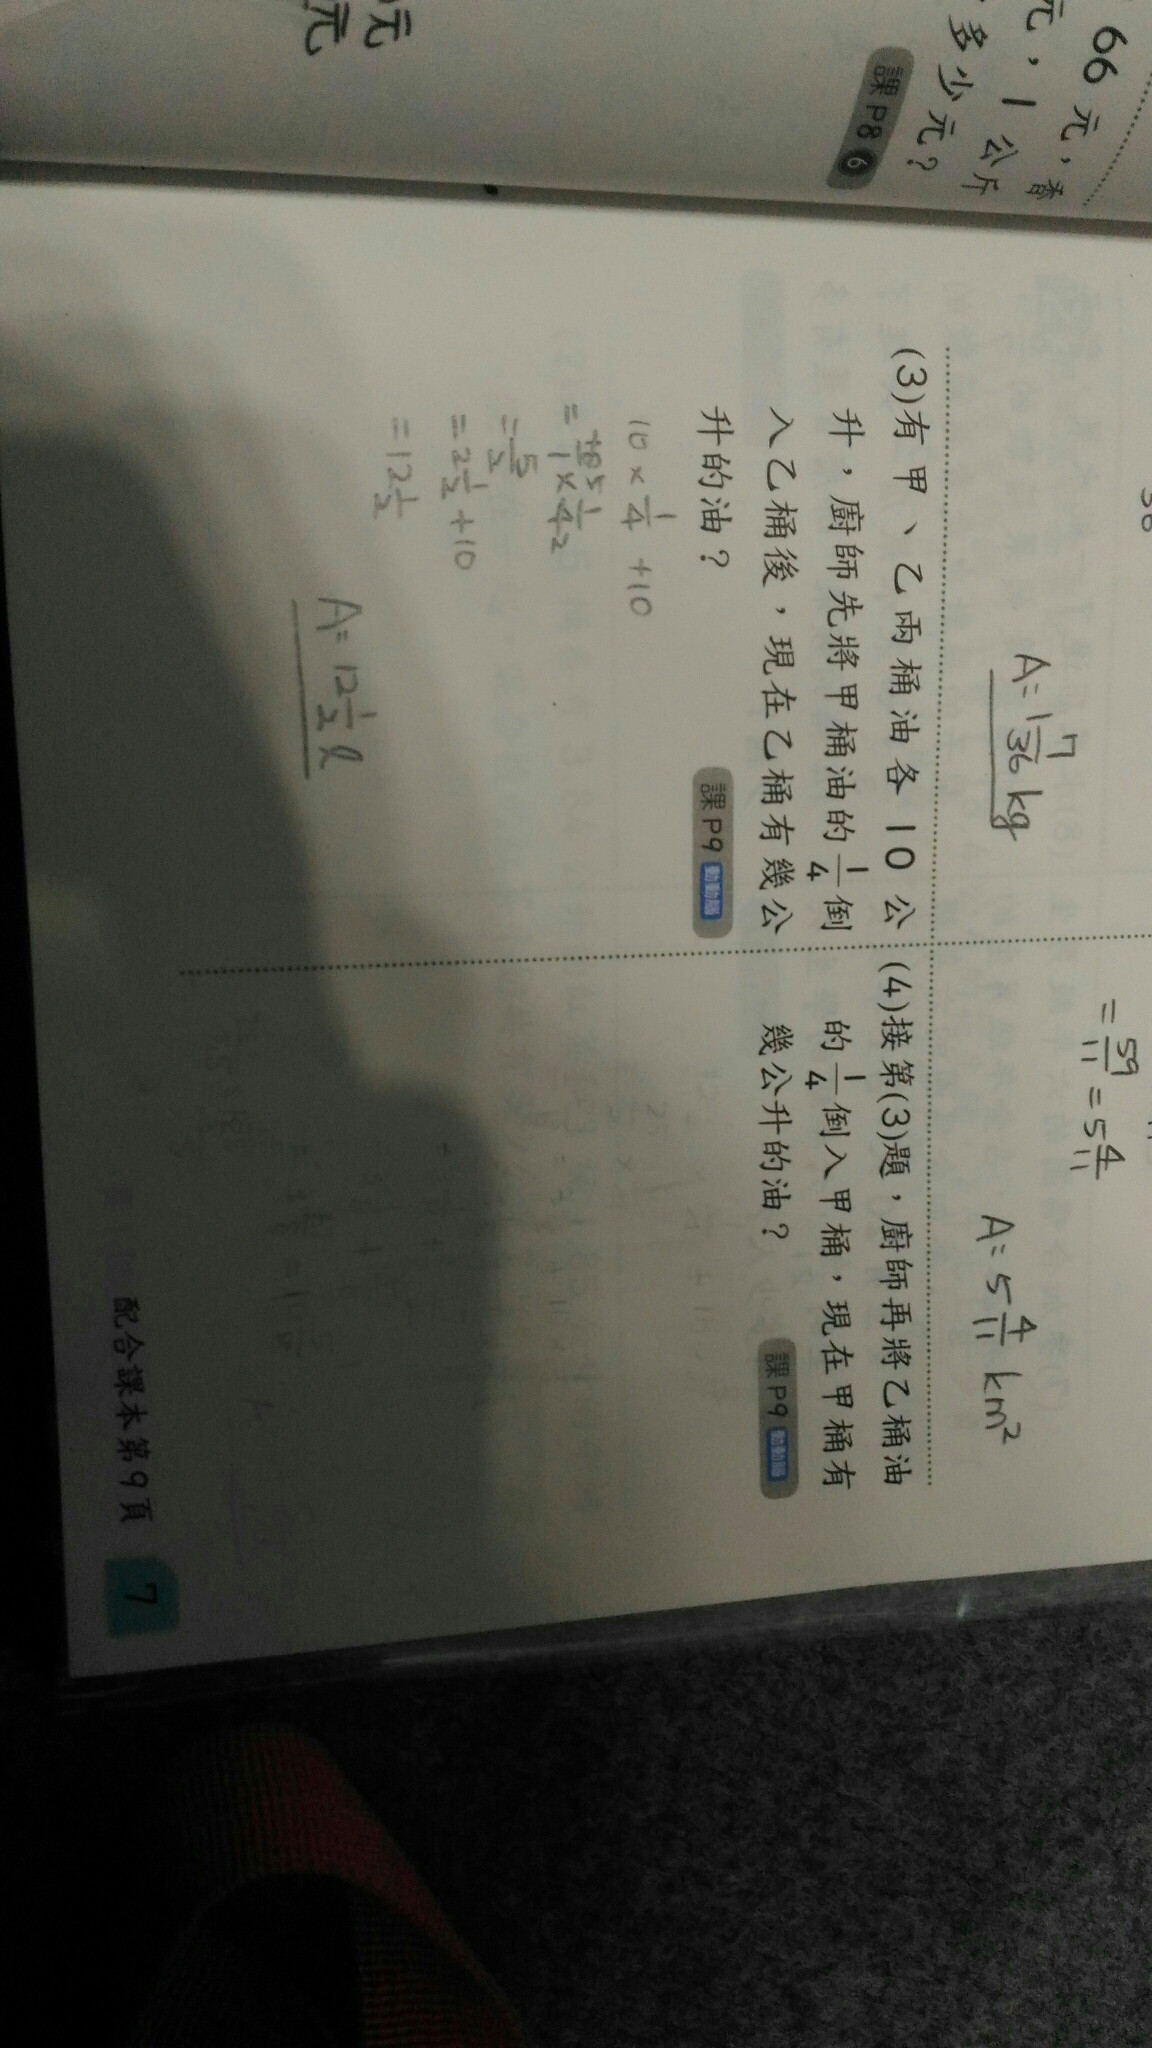 66元，香
元，1公斤
多少元？
課P8 6
元
元
A=1 7/36 kg
=59/11=5 4/11
A=5 4/11 km²
(3)有甲、乙兩桶油各10公
升，廚師先將甲桶油的1/4倒
入乙桶後，現在乙桶有幾公
升的油？
課P9 動動腦
10×1/4+10
=5/2
=2 1/2+10
=12 1/2
A=12 1/2 l
(4)接第(3)題，廚師再將乙桶油
的1/4倒入甲桶，現在甲桶有
幾公升的油？
課P9 動動腦
配合課本第9頁 7